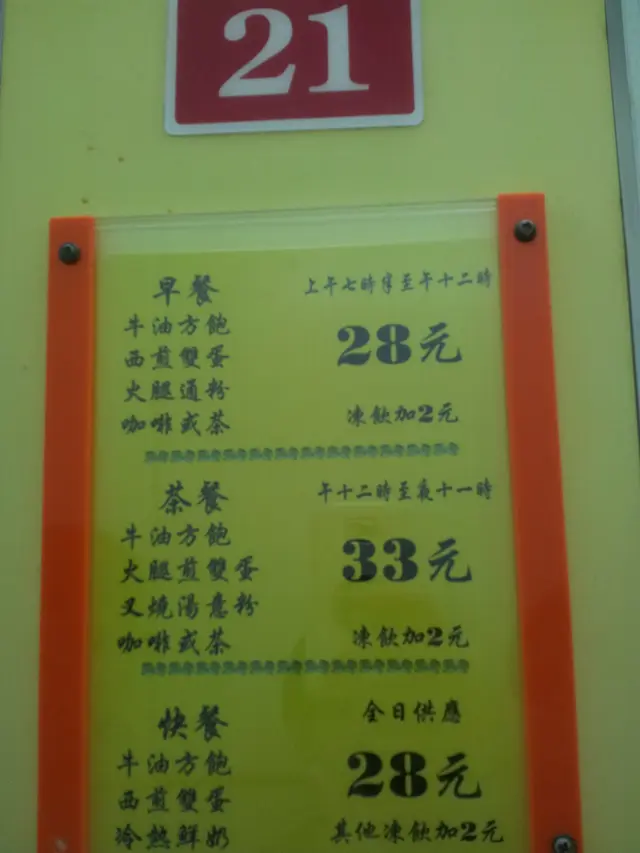 21
早餐 上午七時半至午十二時
牛油方飽
西煎雙蛋 28元
火腿通粉
咖啡或茶 凍飲加2元
茶餐 午十二時至夜十一時
牛油方飽
火腿煎雙蛋 33元
叉燒湯意粉
咖啡或茶 凍飲加2元
快餐 全日供應
牛油方飽
西煎雙蛋 28元
冷熱鮮奶 其他凍飲加2元